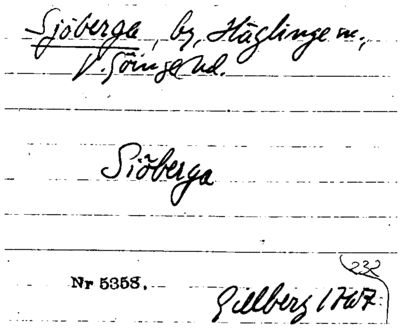 Sjöberga, by, Häglinge sn.,
V. Göinge hd.
Siöberga
232
Nr 5358.
Gillberg 1767